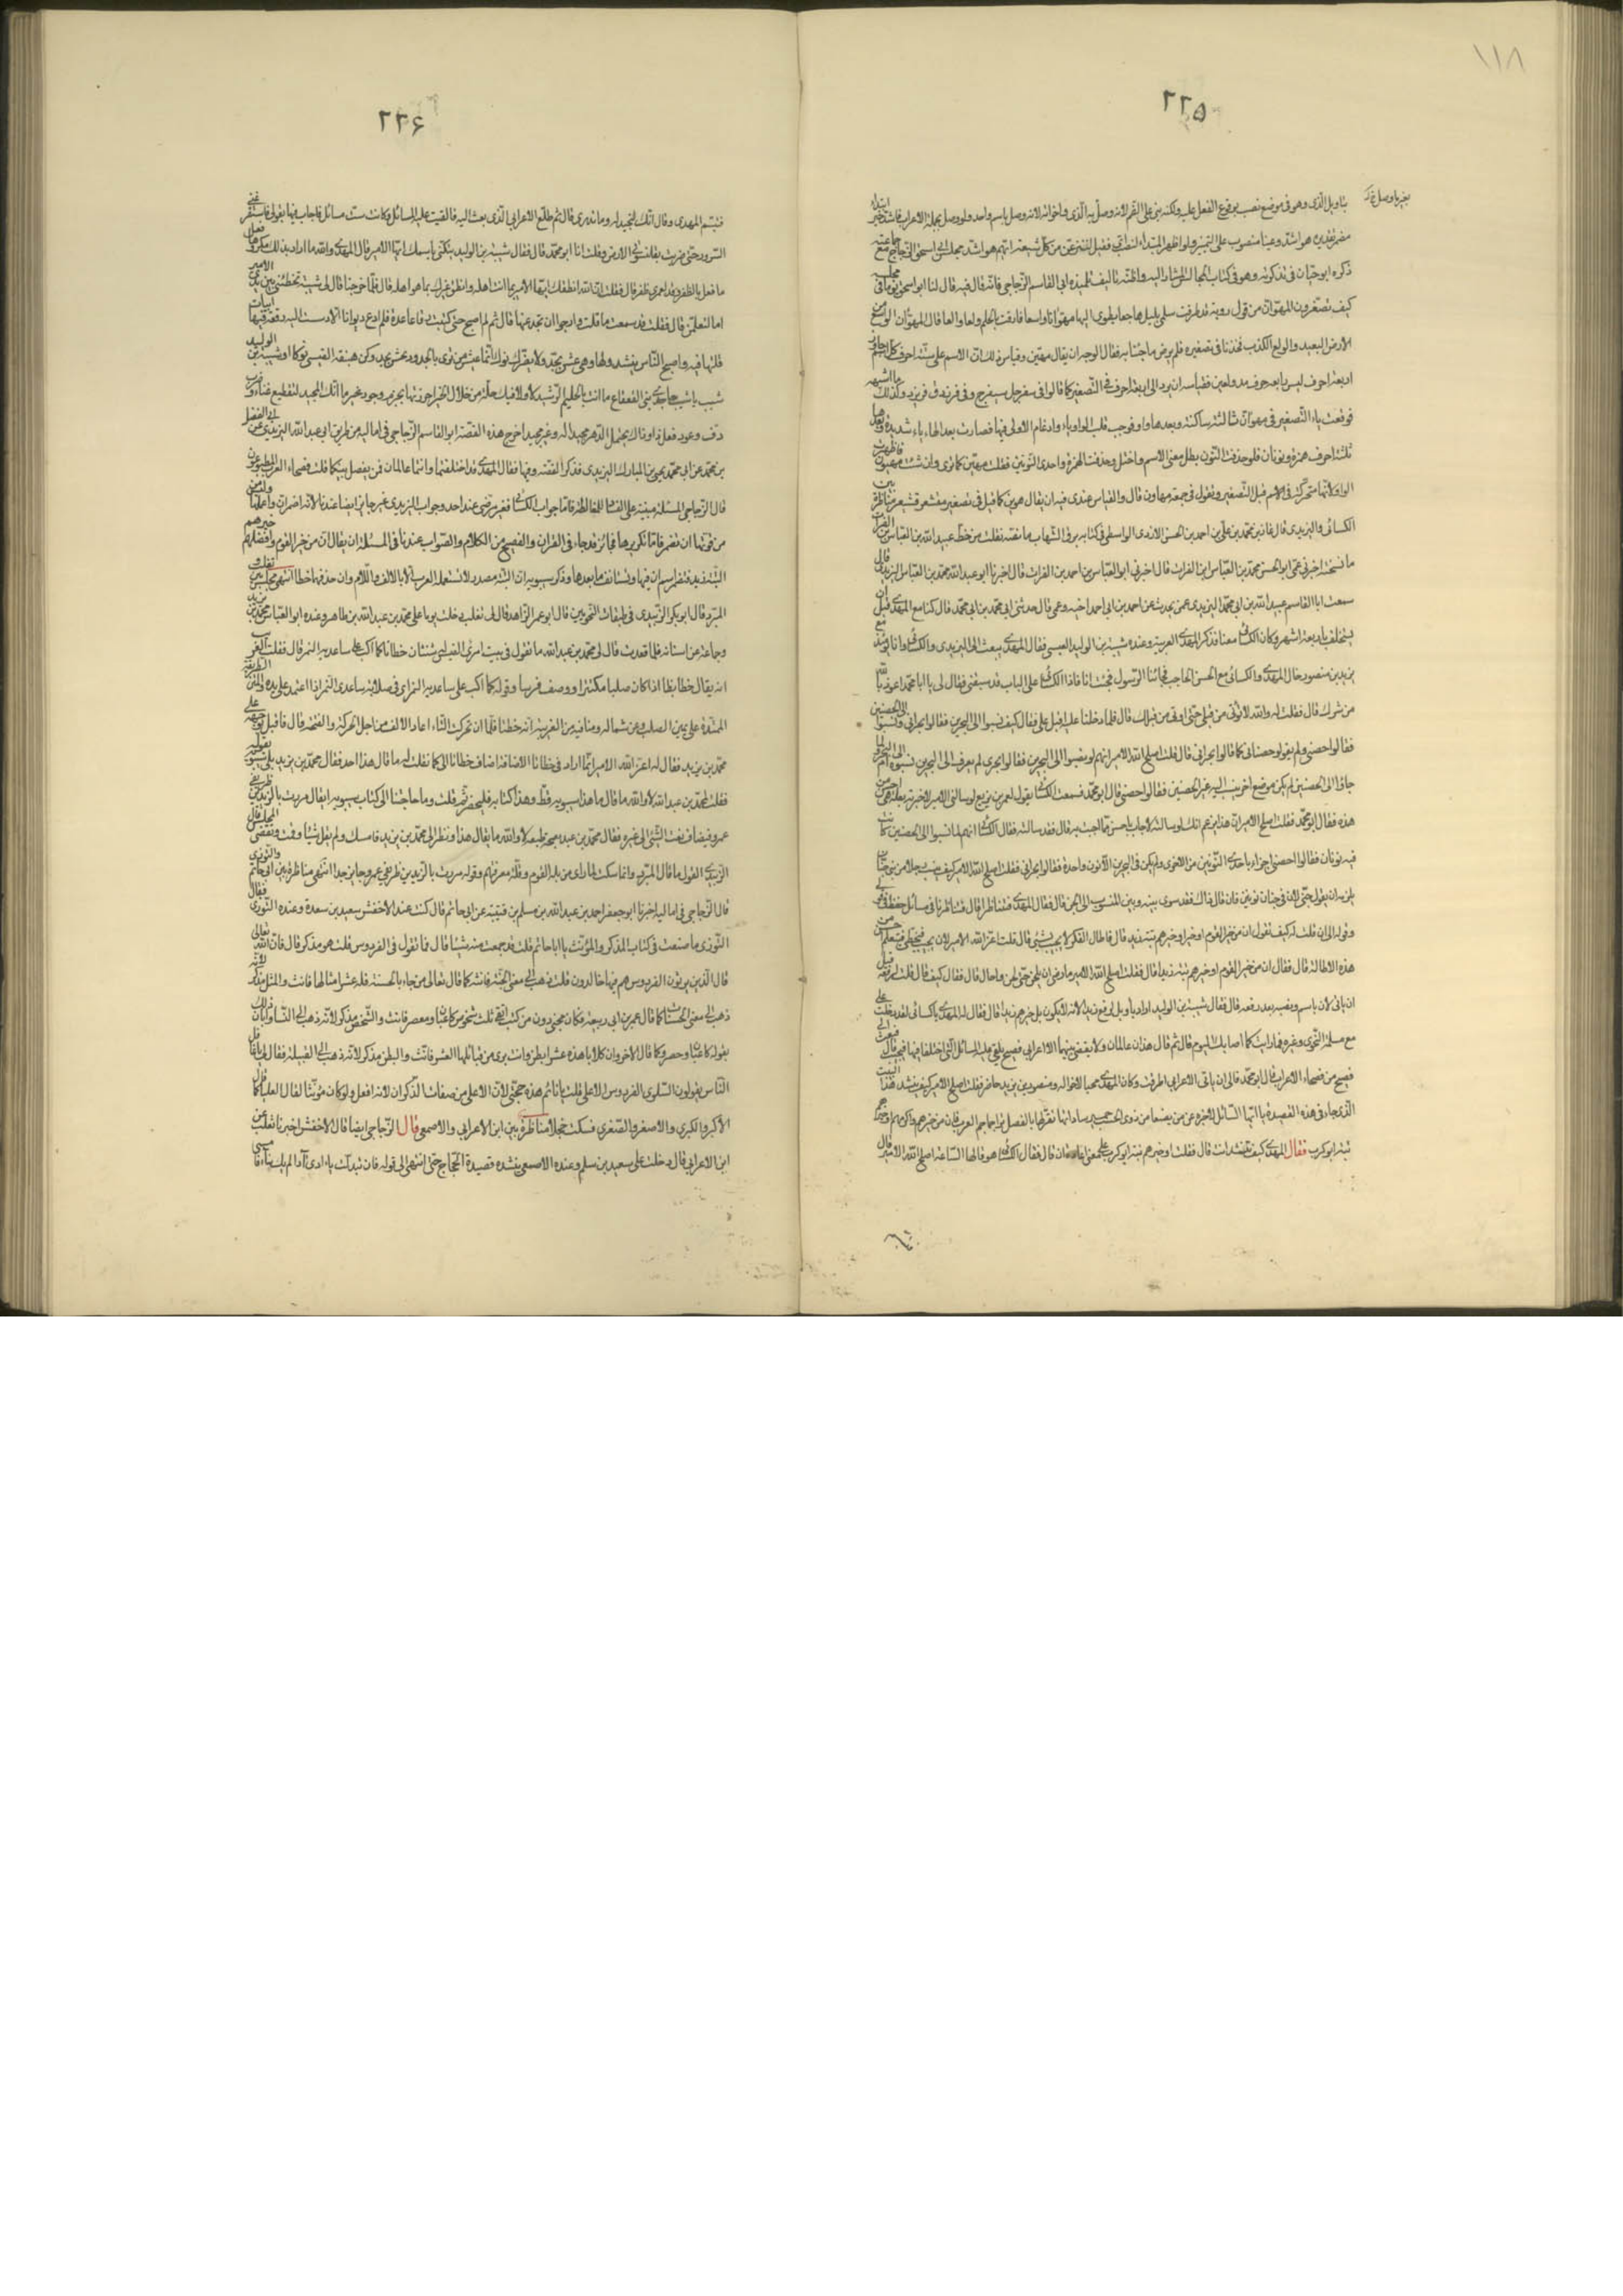 ١١٨
٢٢٥
بتاويل الذى وهو فى موضع نصب بوقوع الفعل عليه ولكنه بنى على الضم لانه وصل به الذى واخواته لانه وصل باسم واحد ولو وصل بجملة لاعرب فاشد خبر ابتداء
مضمر تقديره هو اشد وعتيا منصوب على التمييز ولو اظهر المبتدأ لنصب اى فقيل لننزعن من كل شيعة ايهم هو اشد مجلس ابى اسحق الزجاج مع جماعة
ذكره ابو حيان فى تذكرته وهو فى كتاب المجالس المشار اليه واظنه تاليف تلميذه ابى القاسم الزجاجى فانه قال فيه قال لنا ابو اسحق يوما فى مجلسه
كيف تصغرون المهوأن من قول رؤبة قد طرقت سلمى بليل هاجعا يطوى اليها مهوأنا واسعا فارقت بالحلم ولعا والعا قال المهوأن الواسع من
الارض البعيد والولع الكذب فخذنا فى تصغيره فلم يرض ما جئنا به فقال الوجه ان يقال مهيّن وقياس ذلك ان الاسم على ستة احرف كل اسم جاوز
اربعة احرف ليس رابعه حرف مد ولين فقياسه ان يرد الى اربعة احرف فى التصغير كما قالوا فى سفرجل سفيرج وفى فرزدق فريزد وكذلك ما اشبهه
فوقعت ياء التصغير فى مهوأن ثالثة ساكنة وبعدها واو فوجب قلب الواو ياء وادغام الاولى فيها فصارت بعد الهاء ياء شديدة وبعدها
ثلثة احرف همزة ونونان فلو حذفت النون بطل معنى الاسم واختل وحذفت الهمزة واحدى النونين فقلت مهيّن كما ترى وان شئت مهيوين فاظهرت
الواو لانها متحركة فى الاسم قبل التصغير وتقول فى جمعه مهاون قال والقياس عندى فيه ان يقال هوين كما قيل فى تصغير مقشعر قشيعر مناظرة بين
الكسائى واليزيدى قال غانم بن محمد بن على بن احمد بن الحسن الازدى الواسطى فى كتابه برق الشهاب ما نصه نقلت من خط عبيد الله بن العباس بن الفرات
ما نسخته اخبرنى عمى ابو الحسن محمد بن العباس ابن الفرات قال اخبرنى ابو العباس بن احمد بن الفرات قال اخبرنا ابو عبد الله محمد بن العباس اليزيدى قال
سمعت ابا القاسم عبيد الله بن ابى محمد اليزيدى عمى يحدث عن احمد بن ابى احمد اخيه وعمى قال حدثنى ابى محمد بن ابى محمد قال كنا مع المهدى قبل ان
يستخلف باربعة اشهر وكان الكسائى معنا فذكر المهدى العربية وعنده شيبة بن الوليد العبسى فقال المهدى يبعث الى اليزيدى والكسائى وانا يومئذ مع
يزيد بن منصور خال المهدى والكسائى مع الحسن الحاجب فجاءنا الرسول فجئت انا فاذا الكسائى على الباب قد سبقنى فقال لى يا ابا محمد اعوذ بالله
من شرك قال فقلت له والله لا تؤتى من قبلى حتى اوتى من قبلك قال فلما دخلنا عليه اقبل على فقال كيف نسبوا الى البحرين فقالوا بحرانى ونسبوا الى الحصنين
فقالوا حصنى ولم يقولوا حصنانى كما قالوا بحرانى قال قلت اصلح الله الامير انهم لو نسبوا الى البحرين فقالوا بحرى لم يعرف الى البحرين نسبوه ام الى البحر ولما
جاؤا الى الحصنين لم يكن موضع اخر ينسب اليه غير الحصنين فقالوا حصنى قال ابو محمد فسمعت الكسائى يقول لعمر بن بزيع لو سالنى الامير لاخبرته بعلة هى احسن من
هذه فقال ابو محمد فقلت اصلح الله الامير ان هذا يزعم انك لو سالته لاجاب باحسن مما اجبت به قال فقد سالته فقال الكسائى انهم لما نسبوا الى الحصنين كانت
فيه نونان فقالوا حصنى اجتزاء باحدى النونين من الاخرى ولم يكن فى البحرين الا نون واحدة فقالوا بحرانى فقلت اصلح الله الامير كيف ينسب رجلا من بنى جنان
يلزمه ان يقول جنى لان فى جنان نونين فان قال ذاك فقد سوى بينه وبين المنسوب الى الجن قال فقال المهدى فتناظرا قال فتناظرنا فى مسائل حفظ قولى
وقوله الى ان قلت له كيف تقول ان من خير القوم او خيرا وخيرهم بتة زيد قال فاطال الفكر لا يجيب بشئ قال قلت اعز الله الامير لان يجيب فيخطئ فيتعلم احسن من
هذه الاطالة قال فقال ان من خير القوم او خيرهم بتة زيدا قال فقلت اصلح الله الامير ما رضى ان يلحن حتى لحن واحال قال فقال كيف قال قلت لرفعه قبل
ان ياتى لان باسم ونصبه بعد رفعه قال فقال شيبة بن الوليد اراد باو بل فرفع زيدا لانه لا يكون بل خيرهم زيدا قال فقال له المهدى يا كسائى لقد دخلت على
مع مسلمة النحوى وغيره فما رايت كما اصابك اليوم قال ثم قال هذان عالمان ولا يقضى بينهما الا اعرابى فصيح يلقى عليه المسائل التى اختلفا فيها فيجيب فبعث الى
فصيح من فصحاء الاعراب قال ابو محمد قال الى ان ياتى الاعرابى اطرقت وكان المهدى محبا لاخواله ومنصور بن يزيد حاضر فقلت اصلح الله الامير كيف ينشد هذا البيت
الذى جاء فى هذه القصيدة يا ايها السائل لاخبره عمن بصنعا من ذوى الحسب حمير ساداتها تقر لها بالفضل طرا جحاجح العرب فان من خيرهم واكرمهم او خيرهم
بتة ابو كرب فقال المهدى كيف تنشد انت قال فقلت او خيرهم بتة ابو كرب على معنى اعادة ان قال فقال الكسائى هو قالها الساعة اصلح الله الامير قال
٢٢٦
فتبسم المهدى وقال انك لتجيد له وما تدرى قال ثم طلع الاعرابى الذى بعث اليه فالقيت عليه المسائل وكانت ست مسائل فاجاب فيها بقولى فاستفزنى
السرور حتى ضربت بقلنسوتى الارض وقلت انا ابو محمد قال فقال شيبة بن الوليد يتكنى باسمك ايها الامير قال المهدى والله ما اراد بذلك مكروها
ما فعل بالظفر وقد لعمرى ظفر قال فقلت ان الله انطقك ايها الامير بما انت اهله وانطق غيرك بما هو اهله قال فلما خرجنا قال لى شيبة تخطئنى بين يدى الامير
اما لتعلمن قال فقلت قد سمعت ما قلت وارجوا ان تجد غبها قال ثم لم اصبح حتى كتبت رقاعا عدة فلم ادع ديوانا الا دسست اليه رقعة فيها ابيات
قلتها فيه واصبح الناس ينشدونها وهى عش بجد ولا يضرك نوك انما عيش من ترى بالجدود عش بجد وكن هبنقة القيسى نوكا او شيبة بن الوليد
شيب يا شيب يا جدى بنى القعقاع ما انت بالحليم الرشيد لا ولا فيك خلة من خلال الخير احرزتها بحزم وجود غير ما انك المجيد لتقطيع غناء وضرب
دف وعود فعلى ذا وذاك يحتمل الدهر مجيدا له وغير مجيد اخرج هذه القصة ابو القاسم الزجاجى فى اماليه من طريق ابى عبد الله اليزيدى عن ابى الفضل
بن محمد عن ابى محمد يحيى بن المبارك اليزيدى فذكر القصة وفيها فقال المهدى قد اختلفتما وانتما عالمان فمن يفصل بينكما قلت فصحاء العرب المطبوعون
قال الزجاجى المسئلة مبنية على الفساد للمغالطة فاما جواب الكسائى فغير مرضى عند احد وجواب اليزيدى غير جائز ايضا عندنا لانه اضمر ان واعملها وليس
من قوتها ان تضمر فاما تكريرها فجائز قد جاء فى القران والفصيح من الكلام والصواب عندنا فى المسئلة ان يقال ان من خير القوم وافضلهم او خيرهم
البتة زيد فتضمر اسم ان فيها وتستانف ما بعدها وذكر سيبويه ان البتة مصدر لا تستعمله العرب الا بالالف واللام وان حذفهما خطأ انتهى مجلس بين ثعلب و
المبرد قال ابو بكر الزبيدى فى طبقات النحويين قال ابو عمر الزاهد قال لى ثعلب دخلت يوما على محمد بن عبد الله بن طاهر وعنده ابو العباس محمد بن يزيد
وجماعة من اسنانه فلما قعدت قال لى محمد بن عبد الله ما تقول فى بيت امرئ القيس لها متنتان خظاتا كما اكب على ساعديه النمر قال فقلت الغريب
انه يقال خظا بظا اذا كان صلبا مكتنزا ووصف فرسا وقوله كما اكب على ساعديه النمر اى فى صلابة ساعدى النمر اذا اعتمد على يده والمتن الطريقة
الممتدة على يمين الصلب ومن شماله وما فيه من العربية انه خظتا فلما ان تحركت التاء اعاد الالف من اجل الحركة والفتحة قال فاقبل بوجهه على
محمد بن يزيد فقال له اعز الله الامير انما اراد فى خظاتا الاضافة اضاف خظاتا الى كما فقلت له ما قال هذا احد فقال محمد بن يزيد بلى سيبويه يقوله
فقلت لمحمد بن عبد الله لا والله ما قال هذا سيبويه قط وهذا كتابه فليحضر ثم قلت وما حاجتنا الى كتاب سيبويه ايقال مررت بالزيدين ظريفى
عمرو فيضاف نعت الشئ الى غيره فقال محمد بن عبد الله بصحة طبعه لا والله ما يقال هذا ونظر الى محمد بن يزيد فامسك ولم يقل شيئا وقمت وتقضى المجلس قال
الزبيدى القول ما قال المبرد وانما سكت لما راى من بله القوم وقلة معرفتهم وقوله مررت بالزيدين ظريفى عمرو جائز جدا انتهى مناظرة بين ابى حاتم والتوزى
قال الزجاجى فى اماليه اخبرنا ابو جعفر احمد بن عبد الله بن مسلم بن قتيبة عن ابى حاتم قال كنت عند الاخفش سعيد بن مسعدة وعنده التوزى فقال
التوزى ما صنعت فى كتاب المذكر والمؤنث يا ابا حاتم قلت قد جمعت منه شيئا قال فما تقول فى الفردوس قلت هو مذكر قال فان الله تعالى
قال الذين يرثون الفردوس هم فيها خالدون قلت ذهب الى معنى الجنة فانثه كما قال تعالى من جاء بالحسنة فله عشر امثالها فانث والمثل مذكر لانه
ذهب الى معنى الحسنات كما قال عمر بن ابى ربيعة فكان مجنى دون من كنت اتقى ثلث شخوص كاعبان ومعصر فانث والشخص مذكر لانه ذهب الى النساء وابان ذلك
بقوله كاعبان ومعصر وكما قال الاخر وان كلابا هذه عشر ابطن وانت برى من قبائلها العشر فانث والبطن مذكر لانه ذهب الى القبيلة فقال لى يا غافل
الناس يقولون اسئلك الفردوس الاعلى قلت يا نائم هذه حجتى لان الاعلى من صفات الذكران لانه افعل ولو كان مؤنثا لقال العليا كما قال
الاكبر والكبرى والاصغر والصغرى فسكت خجلا مناظرة بين ابن الاعرابى والاصمعى قال الزجاجى ايضا قال الاخفش اخبرنا ثعلب عن
ابن الاعرابى قال دخلت على سعيد بن سلم وعنده الاصمعى ينشده قصيدة العجاج حتى انتهى الى قوله فان تبدلت بادى آدا لم يك ينآد فامسى